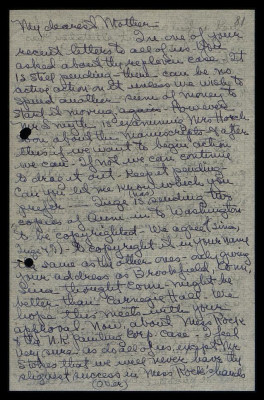 81
My dearest Mother—
In one of your
recent letters to all of us you
asked about the replevin case. It
is still pending—there can be no
active action on it unless we wish to
spend another sum of money to
start it moving again. However
Mr. Smith is examining Mrs. Hatch
soon about the manuscripts & after
this if we want to begin action
we can. If not we can continue
to drag it out. & keep it pending—
Can you let me know which you
prefer— Inge is sending two
copies of Anim in to Washington
to be copyrighted. We agreed (Lina,
Inge & I) to copyright it in your name
same as the other ones— only giving
your address as Brookfield, Conn.
Lina thought Conn. might be
better than Carnegie Hall. We
hope this meets with your
approval. Now, about Miss Rock
& the N.K. Families Corp. case we feel
very sure, as do all of us, except
Stokes that we will never have the
slightest success in Miss Rock's hands
(over)